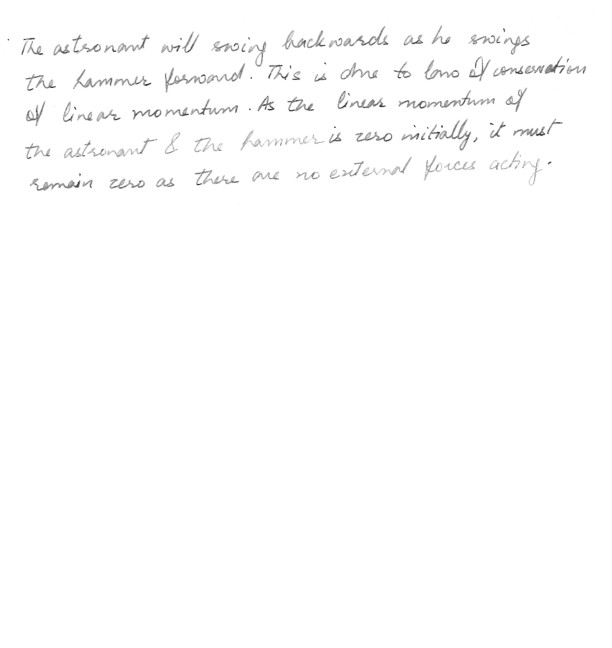 The astronant will swing backwards as he swings
the hammer forward. This is due to law of conservation
of linear momentum. As the linear momentum of
the astronant & the hammer is zero initially, it must
remain zero as there are no external forces acting.